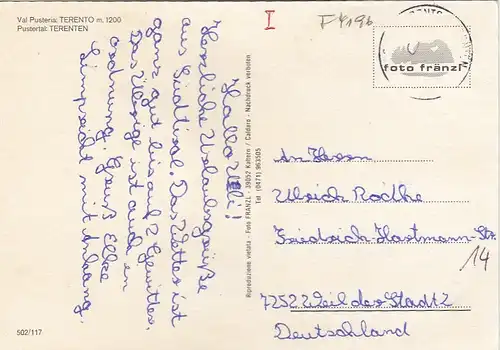 Val Pusteria: TERENTO m. 1200
Pustertal: TERENTEN
I
F 4196
foto fränzl
Hallo Uli!
Herzliche Urlaubsgrüße
aus Südtirol. Das Wetter ist
ganz gut bis auf 2 Gewitter.
Das Übrige ist auch in
Ordnung. Gruß Elke
Limpricht mit Anhang.
Riproduzione vietata - Foto FRÄNZL - 39052 Kaltern / Caldaro - Nachdruck verboten
Tel (0471) 963505
An Herrn
Ulrich Rodtke
Friedrich-Hartmann-Str.
14
7252 Weil der Stadt 2
Deutschland
502/117